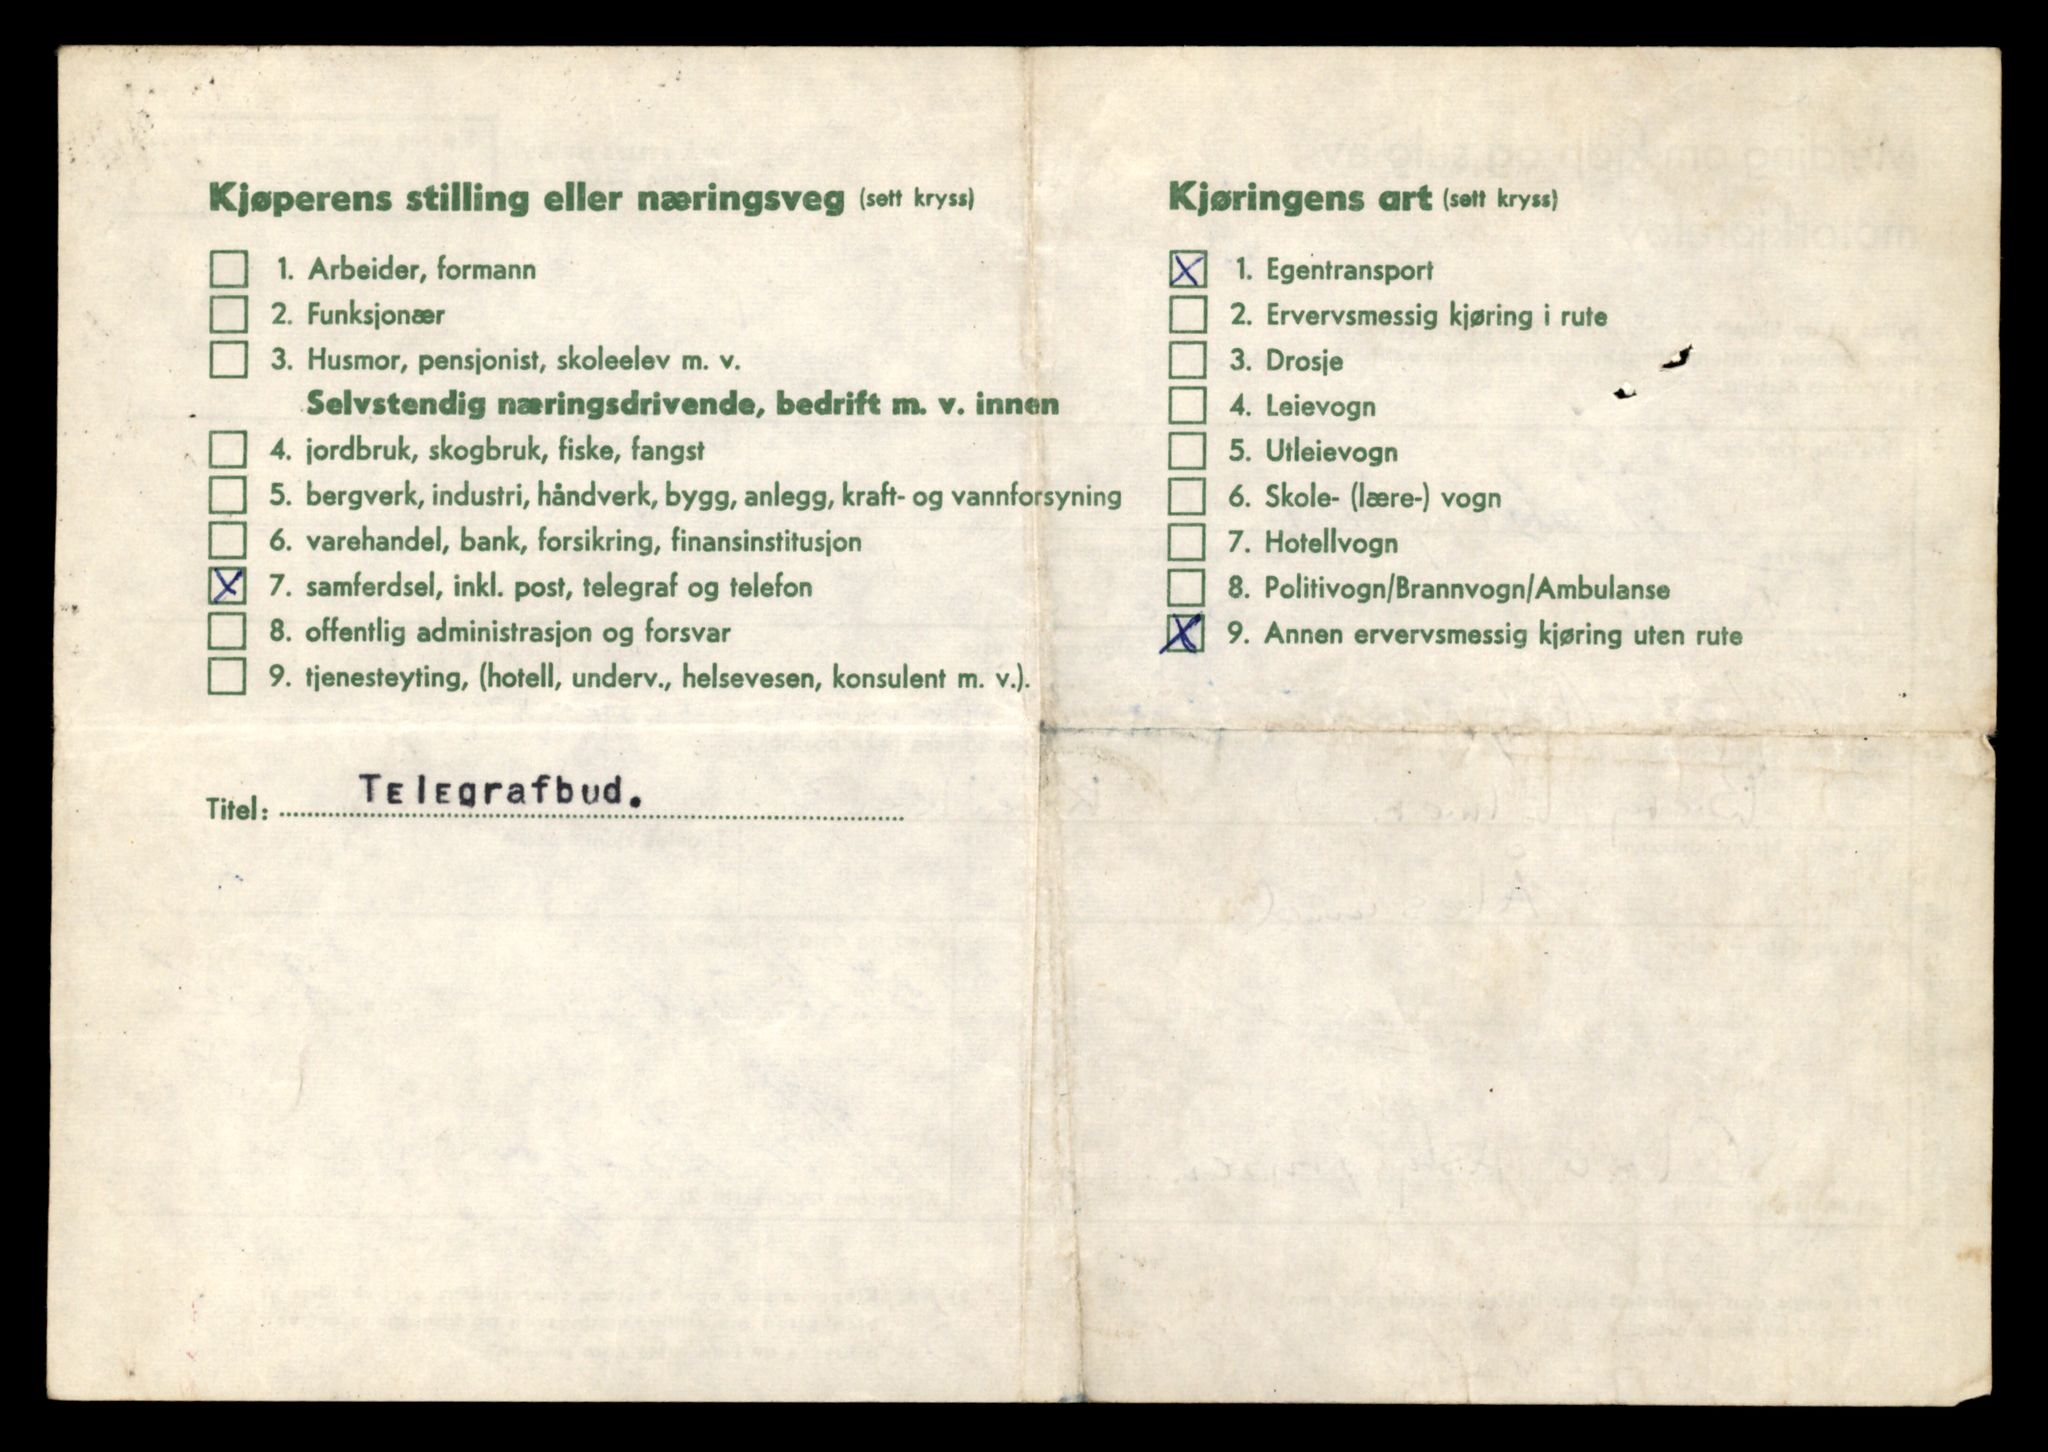 Kjøperens stilling eller næringsveg (sett kryss)
1. Arbeider, formann
2. Funksjonær
3. Husmor, pensjonist, skoleelev m. v.
Selvstendig næringsdrivende, bedrift m. v. innen
4. jordbruk, skogbruk, fiske, fangst
5. bergverk, industri, håndverk, bygg, anlegg, kraft- og vannforsyning
6. varehandel, bank, forsikring, finansinstitusjon
X 7. samferdsel, inkl. post, telegraf og telefon
8. offentlig administrasjon og forsvar
9. tjenesteyting, (hotell, underv., helsevesen, konsulent m. v.).
Titel: Telegrafbud.
Kjøringens art (sett kryss)
X 1. Egentransport
2. Ervervsmessig kjøring i rute
3. Drosje
4. Leievogn
5. Utleievogn
6. Skole- (lære-) vogn
7. Hotellvogn
8. Politivogn/Brannvogn/Ambulanse
X 9. Annen ervervsmessig kjøring uten rute